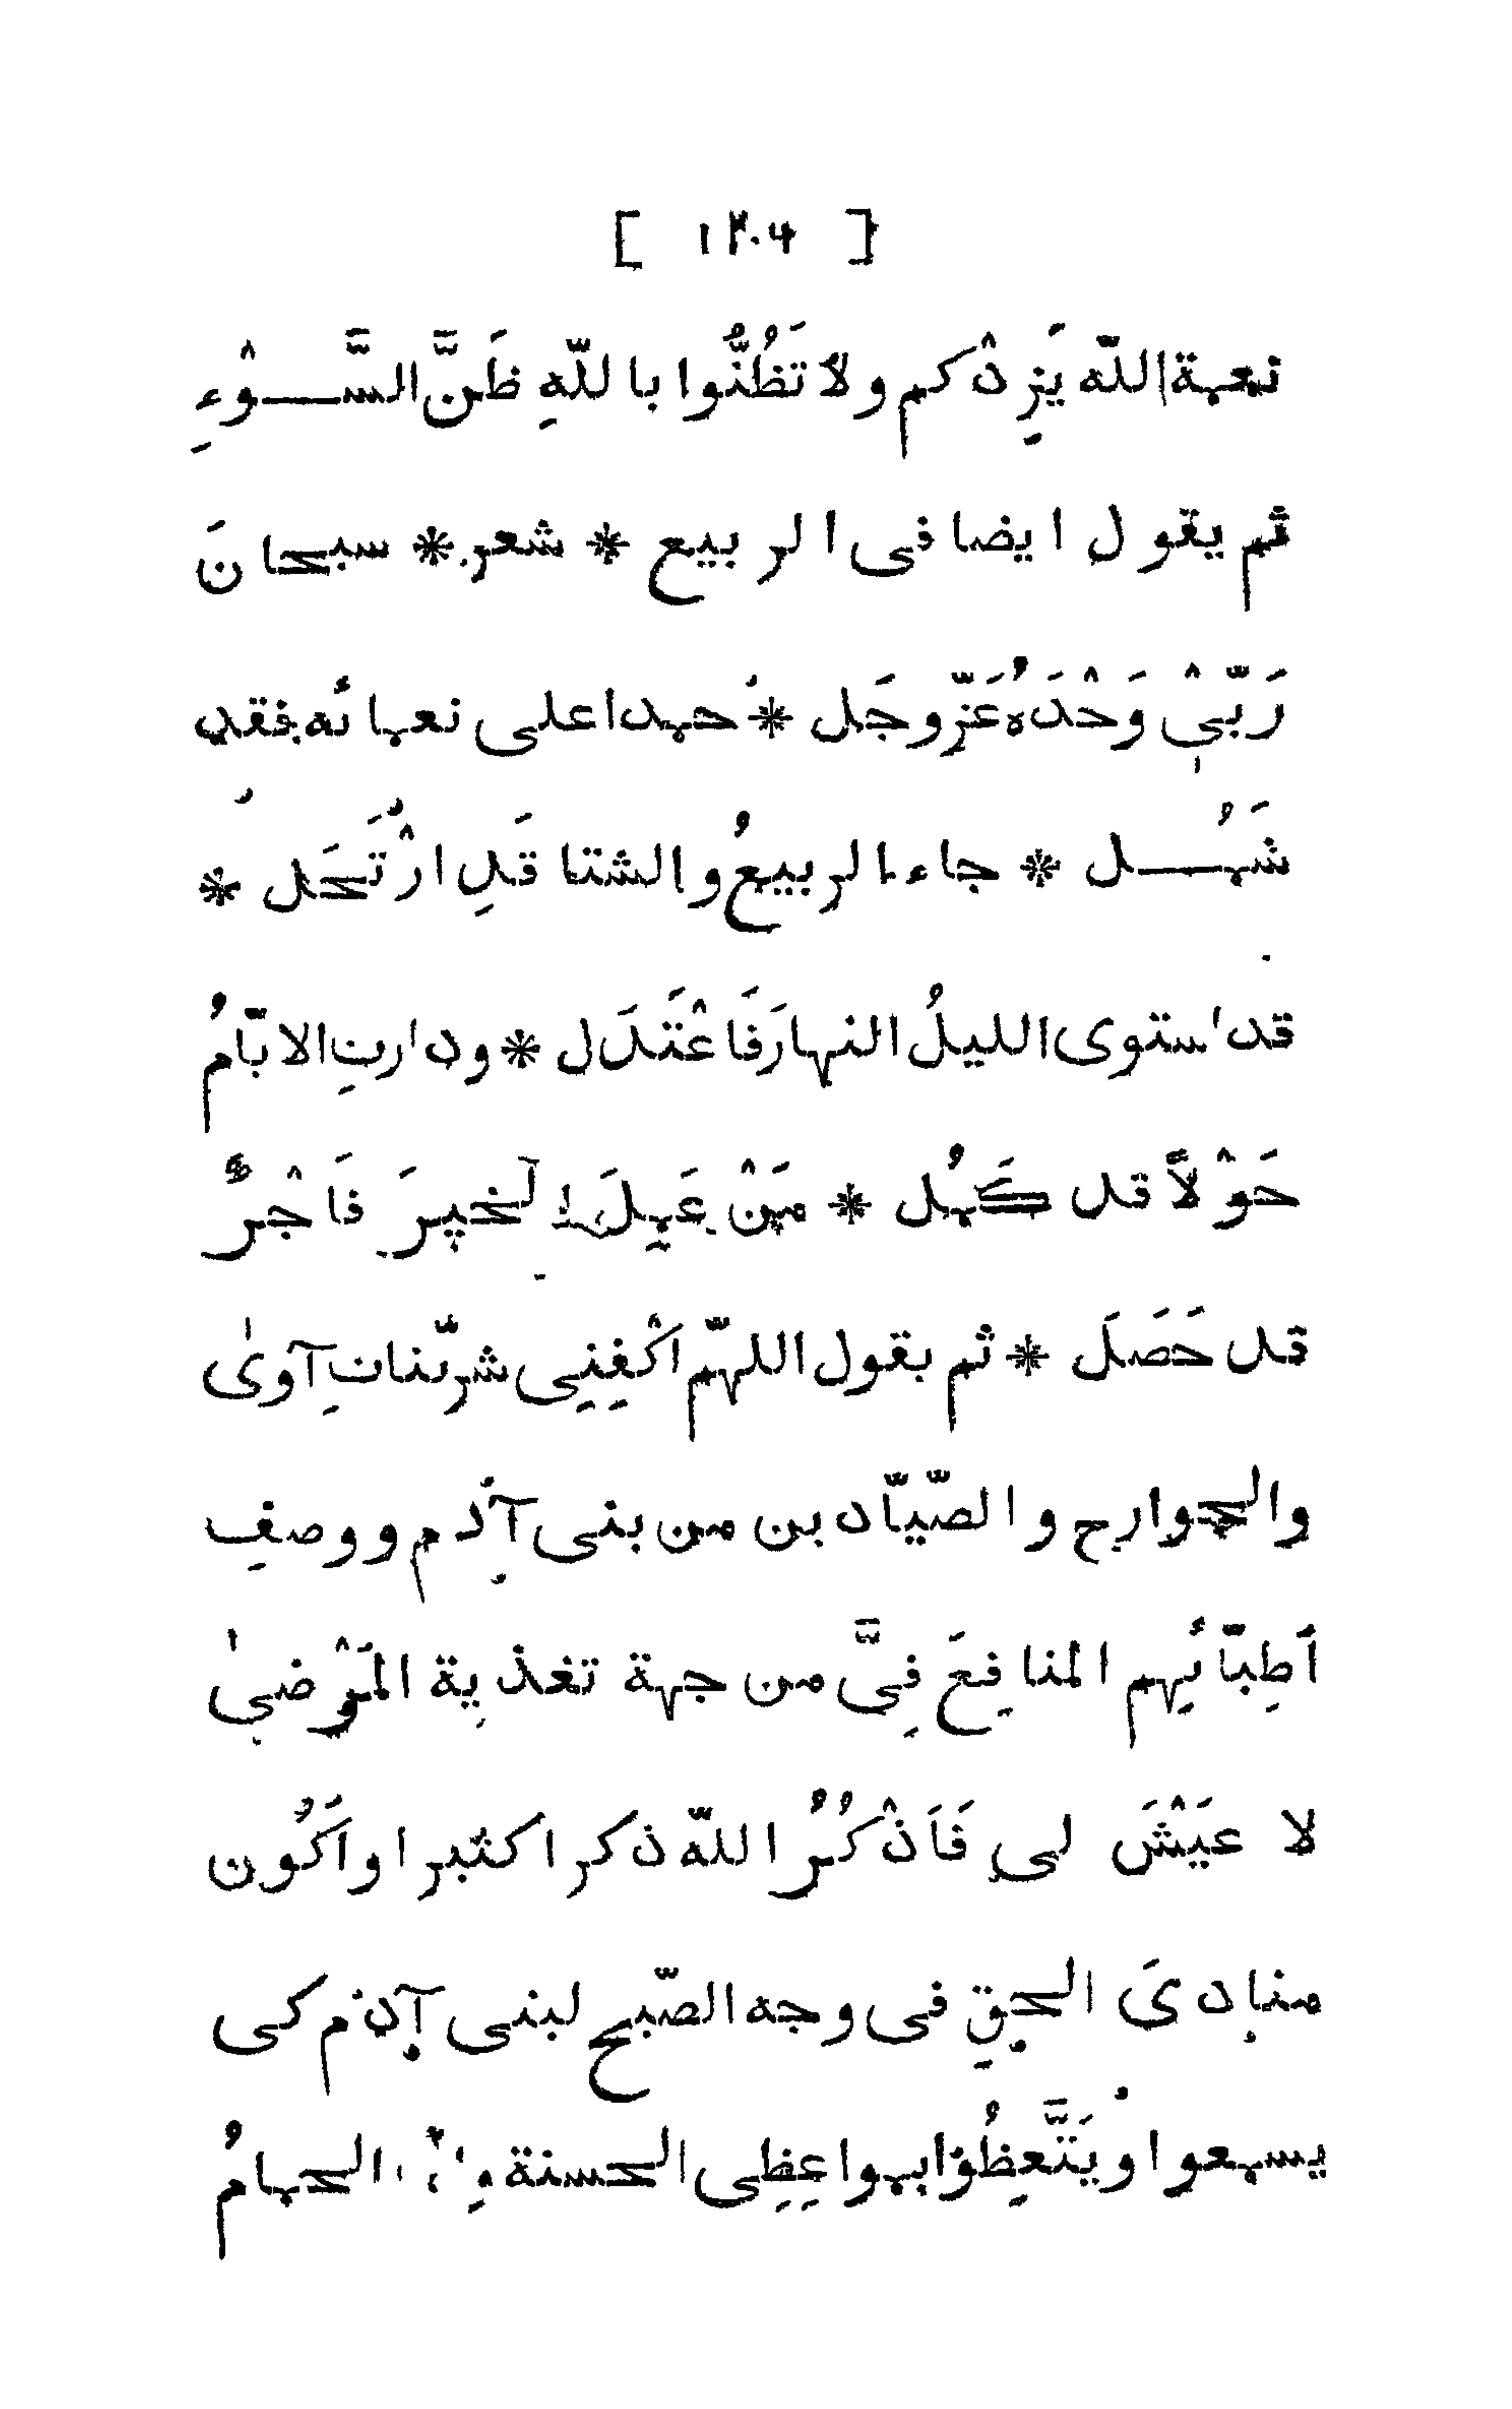 [ ١٢٠٤ ]
نعمة الله يَزِدْكم ولا تَظُنُّوا باللّهِ ظَنَّ السَّــوْءِ
ثم يقول ايضا فى الربيع * شعر * سبحانَ
رَبّىْ وَحْدَهُ عَزّ وجَل * حمدا على نعمائه فقد
شَمُــل * جاء الربيعُ والشتا قَدِ ارْتَحَل *
قد استوى الليلُ النهارَ فَاعْتَدَل * ودارتِ الايّامُ
حَوْلاً قد كَمُل * مَنْ عَمِلَ الخيرَ فَاَجْرٌ
قد حَصَلَ * ثم يقول اللهمّ اكْفِنِى شرّ بناتِ آوىٰ
والجوارح والصّيّادين من بنى آدم ووصفِ
اَطِبّائِهم المنافِعَ فِىَّ من جهة تغذية المَرْضىٰ
لا عَيْشَ لى فَاَذْكُرُ اللّه ذكرا كثيرا واَكُون
منادىَ الحقِ فى وجه الصّبح لبنى آدم كى
يسمعوا ويَتَّعِظُوْا بمواعِظِى الحسنة الحمامُ